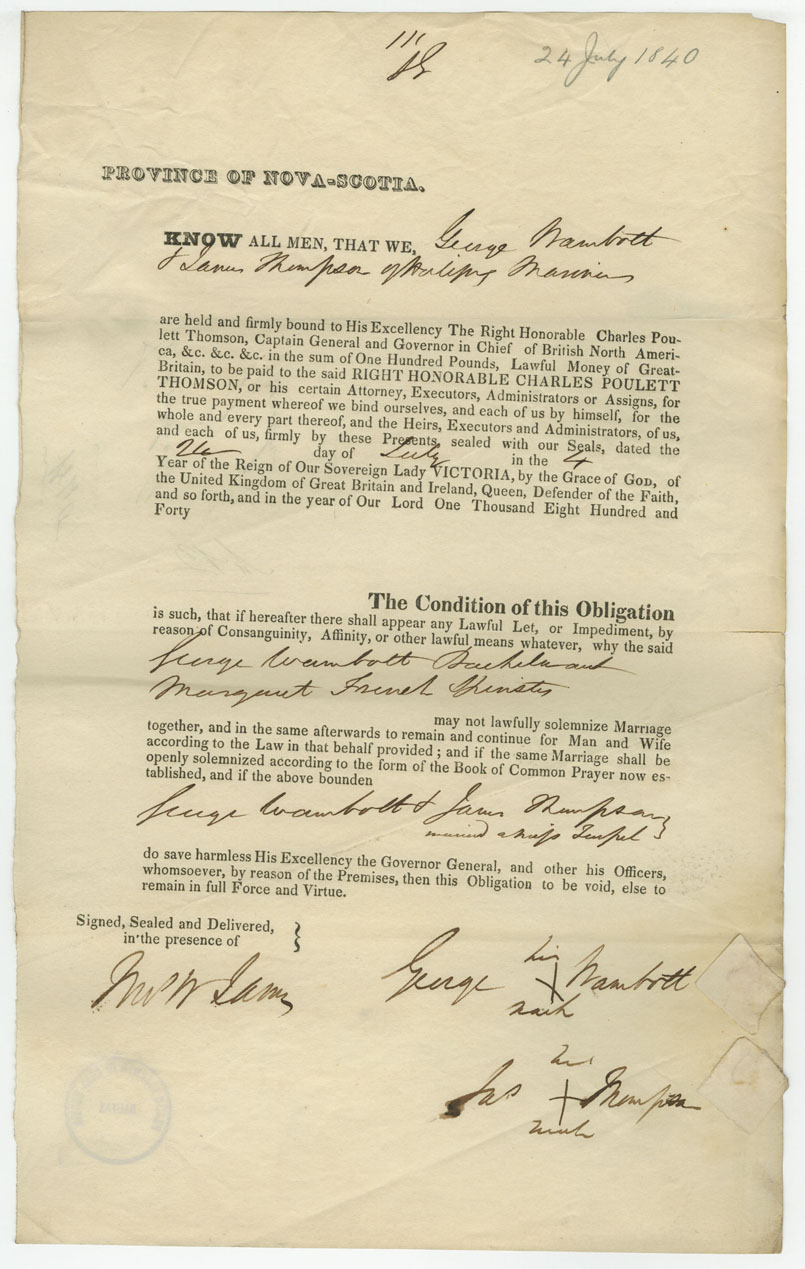 111
24 July 1840
PROVINCE OF NOVA-SCOTIA.
KNOW ALL MEN, THAT WE, George Wambolt
& James Thompson of Halifax Mariners
are held and firmly bound to His Excellency The Right Honorable Charles Pou-
lett Thomson, Captain General and Governor in Chief of British North Ameri-
ca, &c. &c. &c. in the sum of One Hundred Pounds, Lawful Money of Great-
Britain, to be paid to the said RIGHT HONORABLE CHARLES POULETT
THOMSON, or his certain Attorney, Executors, Administrators or Assigns, for
the true payment whereof we bind ourselves, and each of us by himself, for the
whole and every part thereof, and the Heirs, Executors and Administrators, of us,
and each of us, firmly by these Presents, sealed with our Seals, dated the
day of July in the 4
Year of the Reign of Our Sovereign Lady VICTORIA, by the Grace of GOD, of
the United Kingdom of Great Britain and Ireland, Queen, Defender of the Faith,
and so forth, and in the year of Our Lord One Thousand Eight Hundred and
Forty
The Condition of this Obligation
is such, that if hereafter there shall appear any Lawful Let, or Impediment, by
reason of Consanguinity, Affinity, or other lawful means whatever, why the said
George Wambolt Bachelor and
Margaret French Spinster
may not lawfully solemnize Marriage
together, and in the same afterwards to remain and continue for Man and Wife
according to the Law in that behalf provided; and if the same Marriage shall be
openly solemnized according to the form of the Book of Common Prayer now es-
tablished, and if the above bounden
George Wambolt & James Thompson }
married a Miss
do save harmless His Excellency the Governor General, and other his Officers,
whomsoever, by reason of the Premises, then this Obligation to be void, else to
remain in full Force and Virtue.
Signed, Sealed and Delivered, }
in the presence of
his
George X Wambolt
mark
Thos W James
his
Jas + Thompson
mark